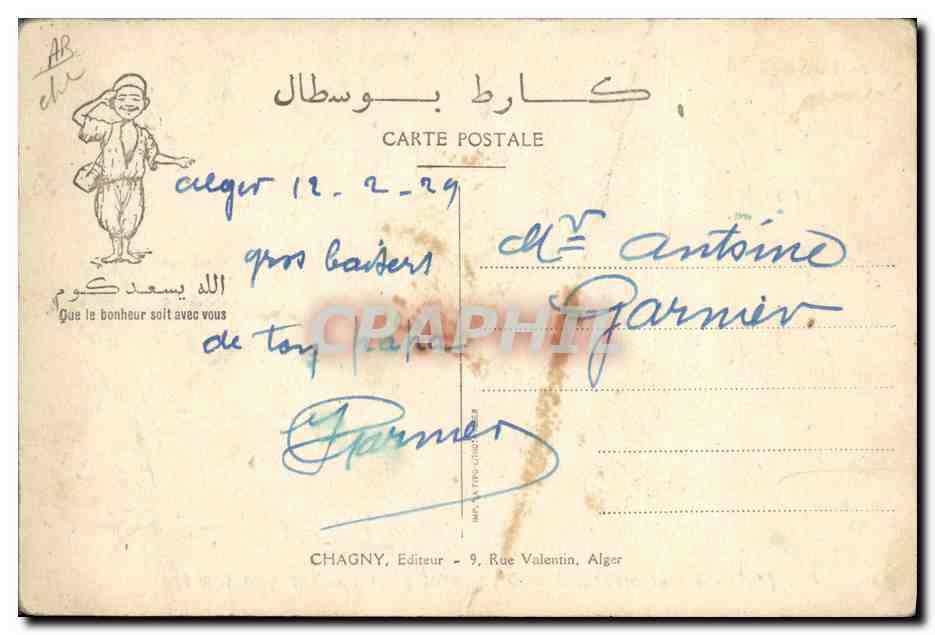 AB
كارط بوسطال
CARTE POSTALE
Alger 12 - 2 - 29
gros baisers
de ton papa
Garnier
Mr Antoine
Garnier
الله يسعدكوم
Que le bonheur soit avec vous
CRAPHIL
CHAGNY, Editeur - 9, Rue Valentin, Alger